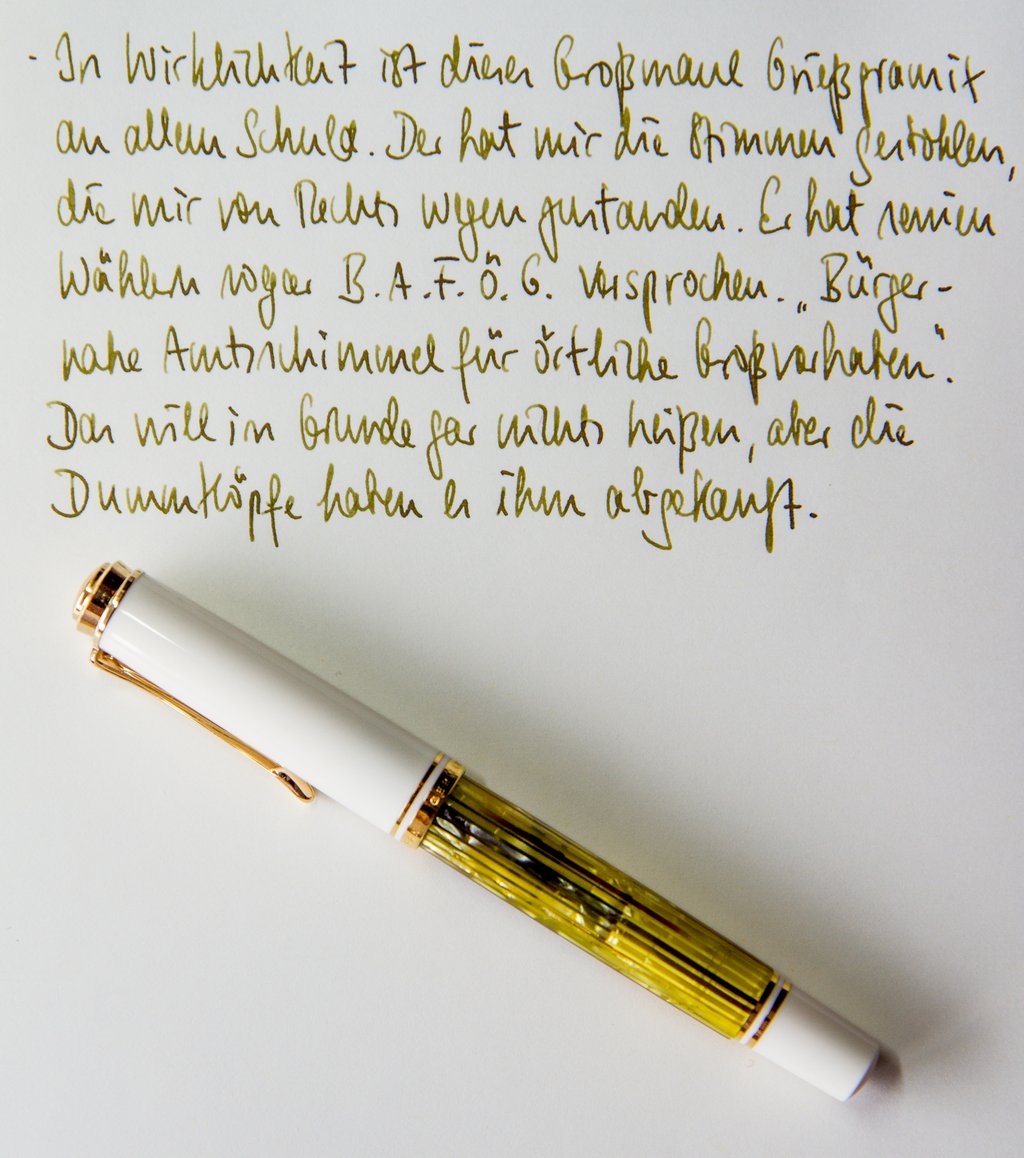 - In Wirklichkeit ist dieser Großmaul Grießpramit
an allem Schuld. Der hat mir die Stimmen gestohlen,
die mir von Rechts wegen zustanden. Er hat seinen
Wählern sogar B.A.F.Ö.G. versprochen. „Bürger-
nahe Amtsschimmel für örtliche Großvorhaben".
Das will im Grunde gar nichts heißen, aber die
Dummköpfe haben es ihm abgekauft.